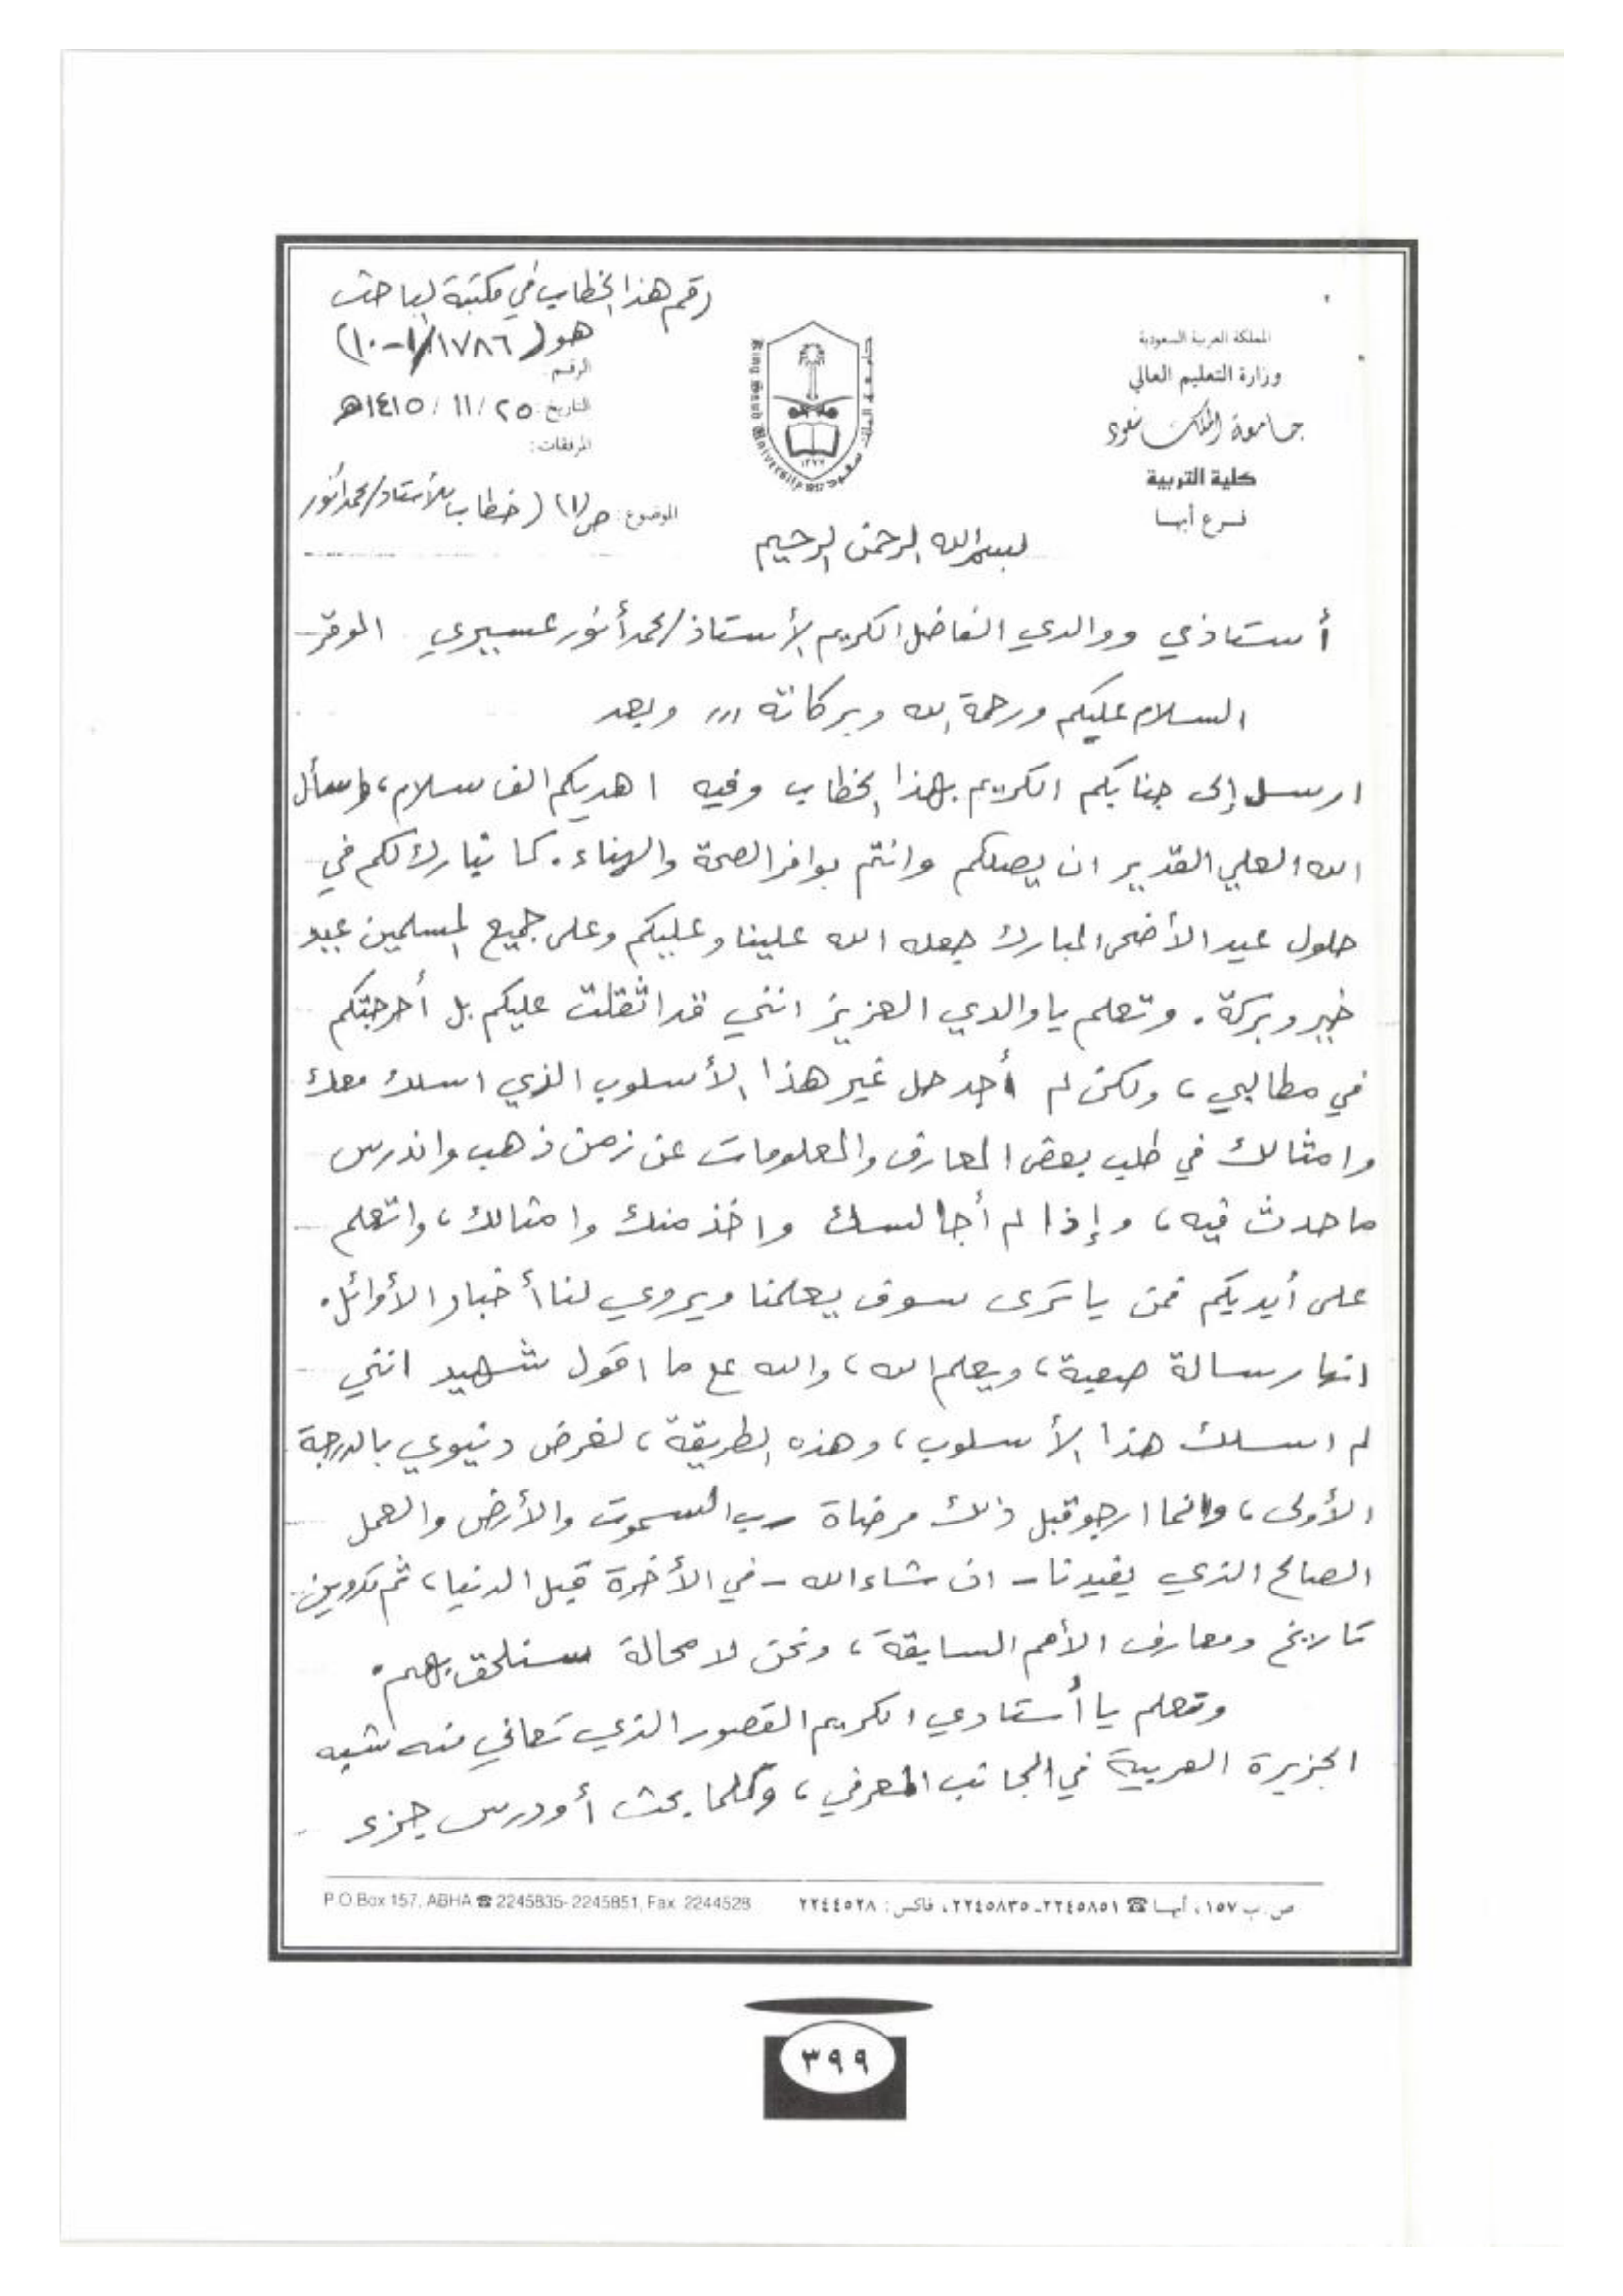 رقم هذا الخطاب في مكتبة الباحث
هو (١٧٨٦/١-١٠)
المملكة العربية السعودية
وزارة التعليم العالي
جامعة الملك سعود
كلية التربية
فرع أبها
جامعة الملك سعود
King Saud University
١٣٧٧
1957
الرقم
التاريخ: ٢٥/ ١١/ ١٤١٥هـ
المرفقات:
الموضوع: ص(١) (خطاب للأستاذ/محمد أنور
بسم الله الرحمن الرحيم
أستاذي ووالدي الفاضل الكريم الأستاذ/محمد أنور عسيري الموقر
السلام عليكم ورحمة الله وبركاته ,,, وبعد
ارسل إلى جنابكم الكريم بهذا الخطاب وفيه اهديكم الف سلام، واسأل
الله العلي القدير ان يصلكم وانتم بوافر الصحة والهناء. كما نبارك لكم في
حلول عيد الأضحى المبارك جعله الله علينا وعليكم وعلى جميع المسلمين عيد
خير وبركة. وتعلم يا والدي العزيز انني قد اثقلت عليكم بل أحرجتكم
في مطالبي، ولكن لم أجد حل غير هذا الأسلوب الذي اسلك معك
وامثالك في طلب بعض المعارف والمعلومات عن زمن ذهب واندرس
ما حدث فيه، وإذا لم أجالسك واخذ منك وامثالك، واتعلم
على أيديكم فمن يا ترى سوف يعلمنا ويروي لنا أخبار الأوائل.
انها رسالة صعبة، ويعلم الله، والله ع ما اقول شهيد انني
لم اسلك هذا الأسلوب، وهذه الطريقة، لغرض دنيوي بالدرجة
الأولى، وانما ارجو قبل ذلك مرضاة رب السموت والأرض والعمل
الصالح الذي يفيدنا - ان شاء الله - في الأخرة قبل الدنيا، ثم تدوين
تاريخ ومعارف الأمم السابقة، ونحن لا محالة سنلحق بهم.
وتعلم يا أستادي الكريم القصور الذي تعاني منه شبه
الجزيرة العربية في الجانب المعرفي، وكلما بحث أو درس جزء
ص.ب ١٥٧، أبها ☎ ٢٢٤٥٨٥١-٢٢٤٥٨٣٥، فاكس: ٢٢٤٤٥٢٨
P.O.Box 157, ABHA ☎ 2245835-2245851, Fax 2244528
٣٩٩